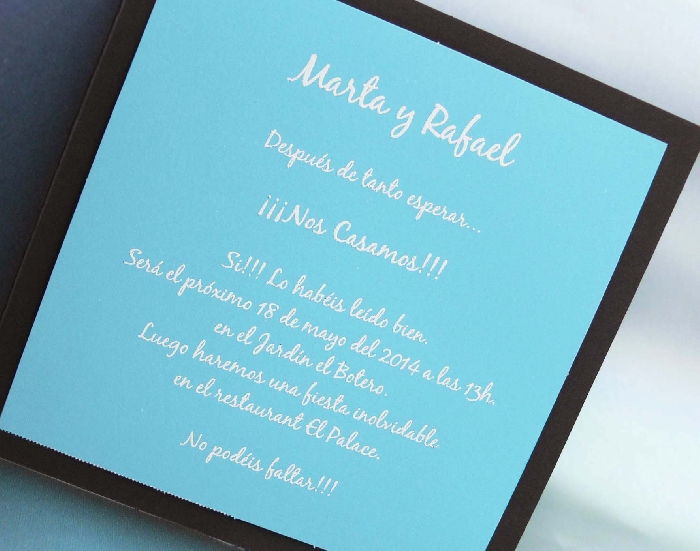 Marta y Rafael
Después de tanto esperar...
¡¡¡Nos Casamos!!!
Si!!! Lo habéis leído bien.
Será el próximo 18 de mayo del 2014 a las 13h.
en el Jardín el Botero.
Luego haremos una fiesta inolvidable
en el restaurant El Palace.
No podéis faltar!!!